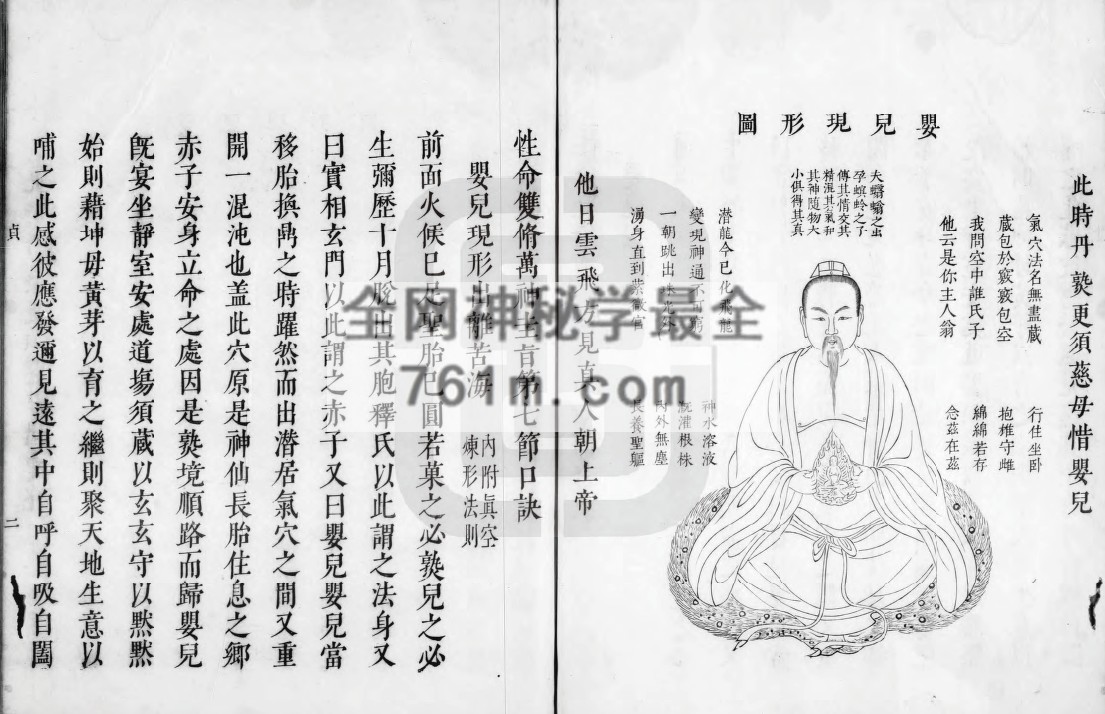 嬰兒現形圖
此時丹熟更須慈母惜嬰兒
氣穴法名無盡藏
藏包於竅竅包空
我問空中誰氏子
他云是你主人翁
行住坐臥
抱雄守雌
綿綿若存
念茲在茲
夫蠮螉之虫
孕螟蛉之子
傳其情交其
精混其氣和
其神隨物大
小俱得其真
潜龍今已化飛龍
變現神通不可窮
一朝跳出珠光外
湧身直到紫微宮
神水溶液
溉灌根株
內外無塵
長養聖軀
他日雲飛方見真人朝上帝
性命雙脩萬神圭旨第七節口訣
嬰兒現形出離苦海
內附真空
煉形法則
前面火候已足聖胎已圓若菓之必熟兒之必
生彌歷十月脫出其胞釋氏以此謂之法身又
曰實相玄門以此謂之赤子又曰嬰兒嬰兒當
移胎換鼎之時躍然而出潜居氣穴之間又重
開一混沌也盖此穴原是神仙長胎住息之鄉
赤子安身立命之處因是熟境順路而歸嬰兒
旣宴坐靜室安處道塲須蔵以玄玄守以默默
始則藉坤母黃芽以育之繼則聚天地生意以
哺之此感彼應發邇見遠其中自呼自吸自闔
貞
二
全网神秘学最全
761m.com